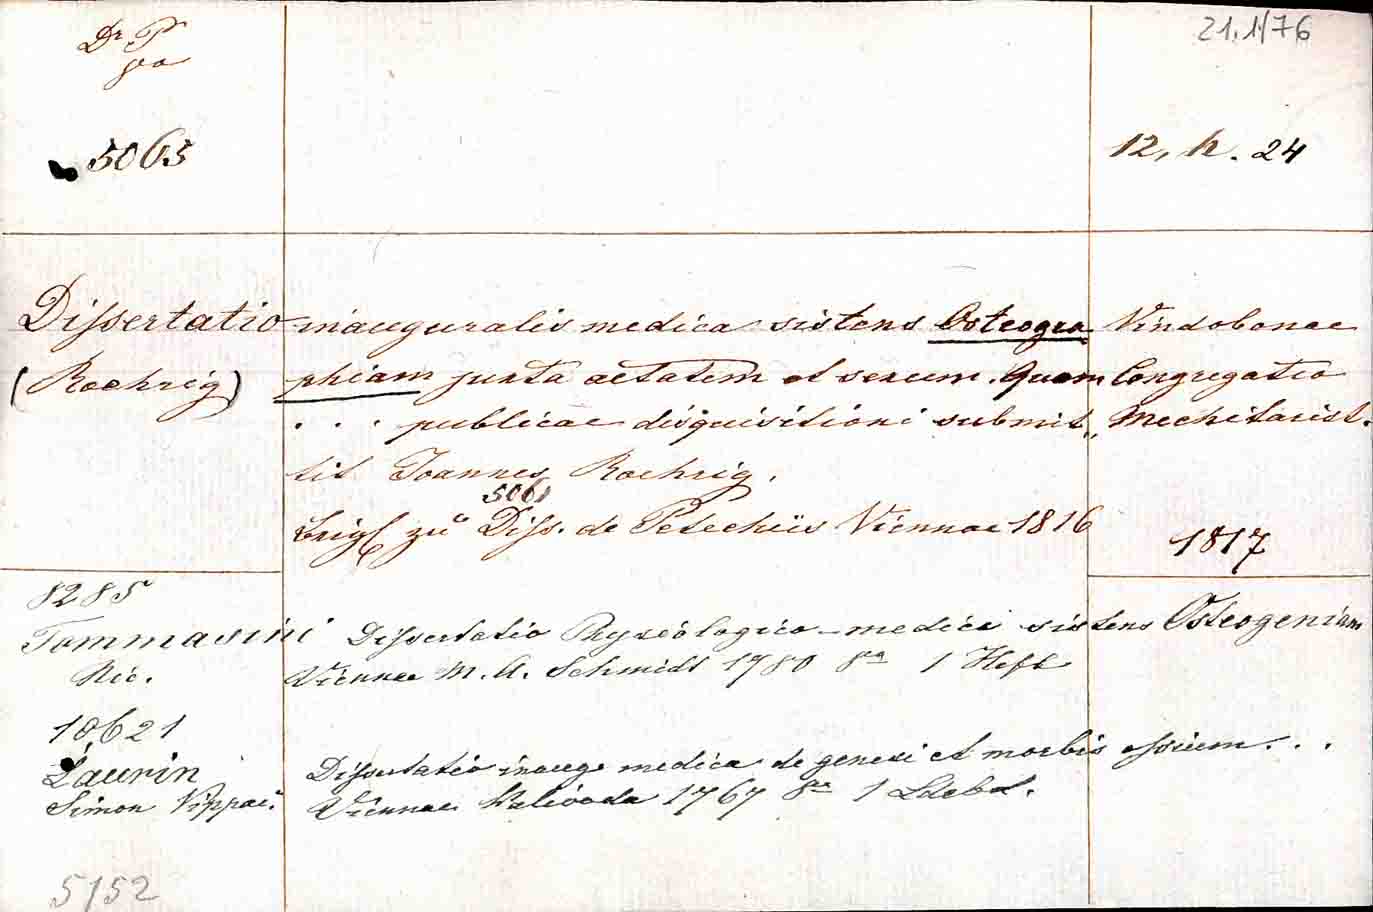 21.1/76
Dr P
5065 12, h. 24
Dissertatio inauguralis medica sistens Osteogra Vindobonae
(Roehrig) phiam juxta aetatem et sexum. Quam Congregatio
. . . publicae disquisitioni submit„ Mechitarist.
tit Joannes Roehrig.
5061
zu Diss. de Petechiis Viennae 1816 1817
8285
Tommasini Dissertatio Physiologico-medica sistens Osteogeniam
Nic. Viennae M. A. Schmidt 1780 8° 1 Heft
10621
Laurin Dissertatio inaug. medica de genesi et morbis ossium. . .
Simon Vippac. Viennae Kaliwoda 1767 8° 1 Ldebd.
5152